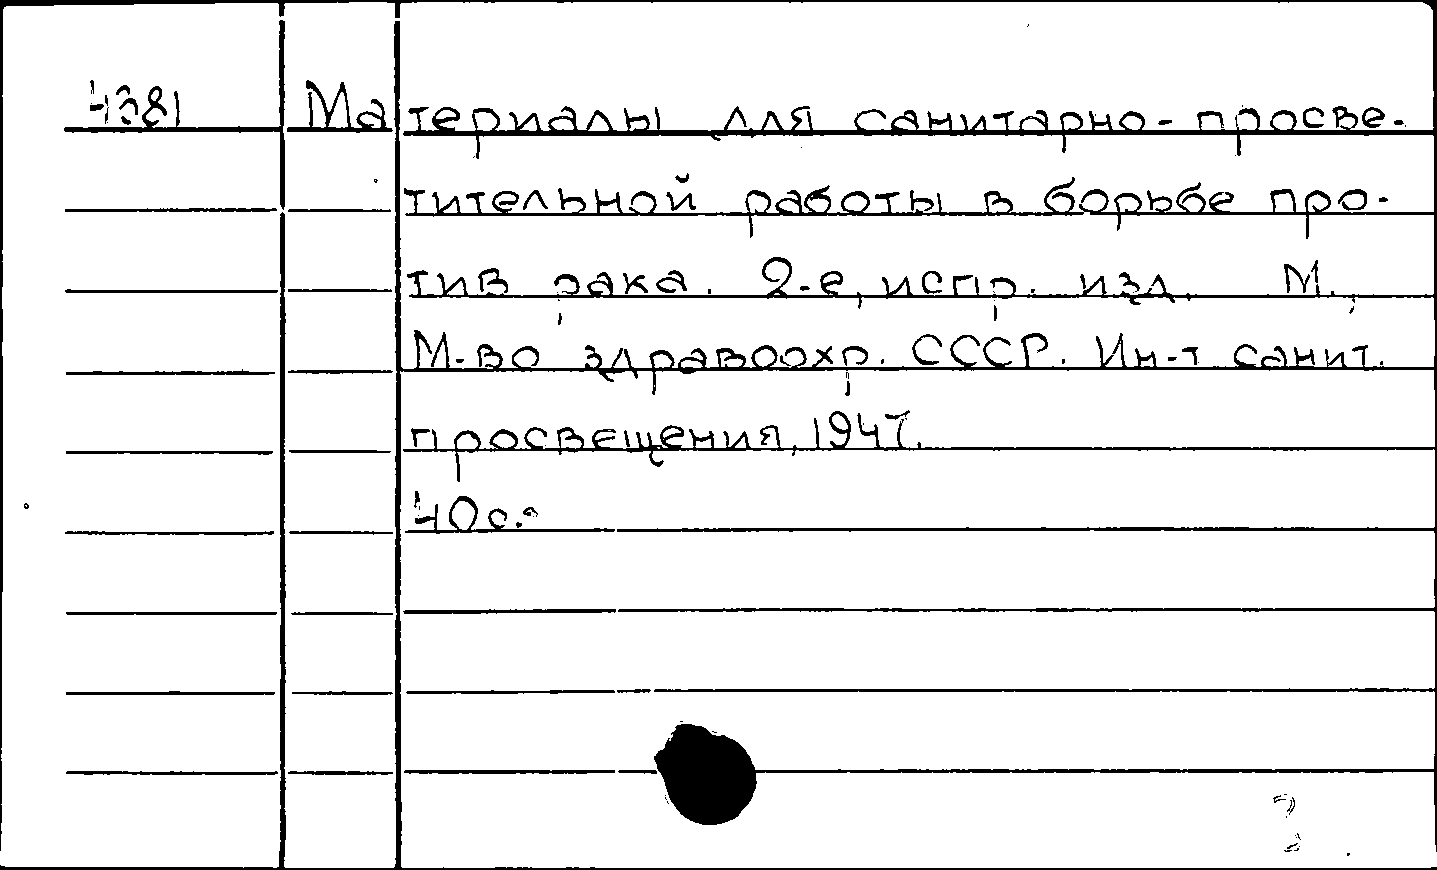 4381 Материалы для санитарно-просве-
тительной работы в борьбе про-
тив рака. 2-е, испр. изд. М.,
М-во здравоохр. СССР. Ин-т санит.
просвещения, 1947.
40 с.